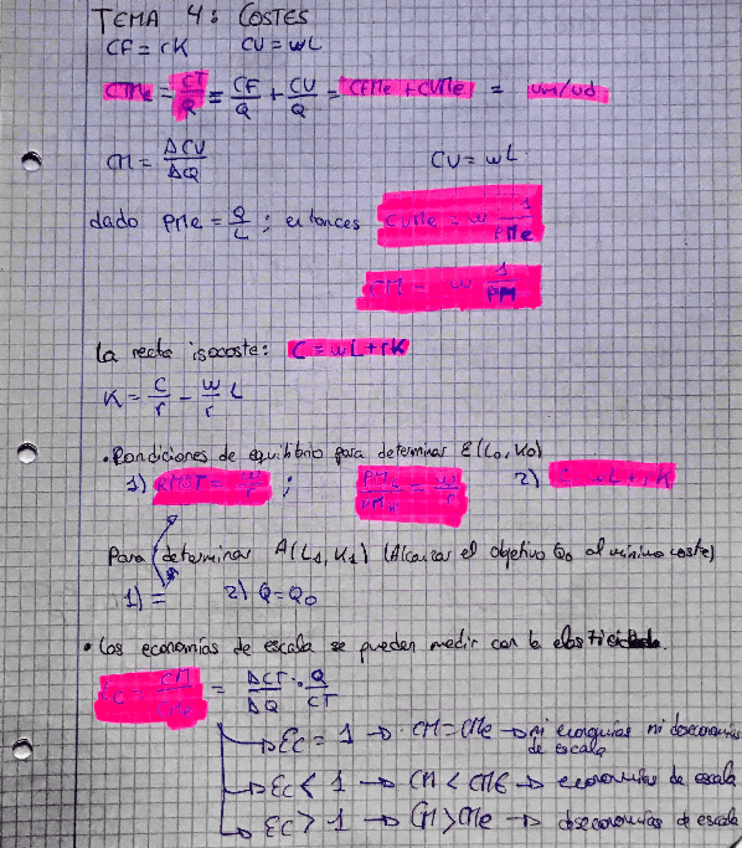 TEMA 4: COSTES
CF = rK CU = wL
CTMe = CT/Q = CF/Q + CU/Q = CFMe + CVMe = um/ud
CM = ΔCU/ΔQ CU = wL
dado PMe = Q/L ; entonces CVMe = w 1/PMe
CM = w 1/PM
La recta isocoste: C = wL + rK
K = C/r - w/r L
• Condiciones de equilibrio para determinar E(L₀, K₀)
1) RMST = w/r ; PML/PMK = w/r 2) C = wL + rK
Para determinar A(L₁, K₁) (Alcanzar el objetivo Q₀ al mínimo coste)
1) = 2) Q = Q₀
• Las economías de escala se pueden medir con la elasticidad.
Ec = CM/CMe = ΔCT/ΔQ · Q/CT
→ Ec = 1 → CM = CMe → ni economías ni deseconomías
de escala
→ Ec < 1 → CM < CME → economías de escala
→ Ec > 1 → CM > CMe → deseconomías de escala